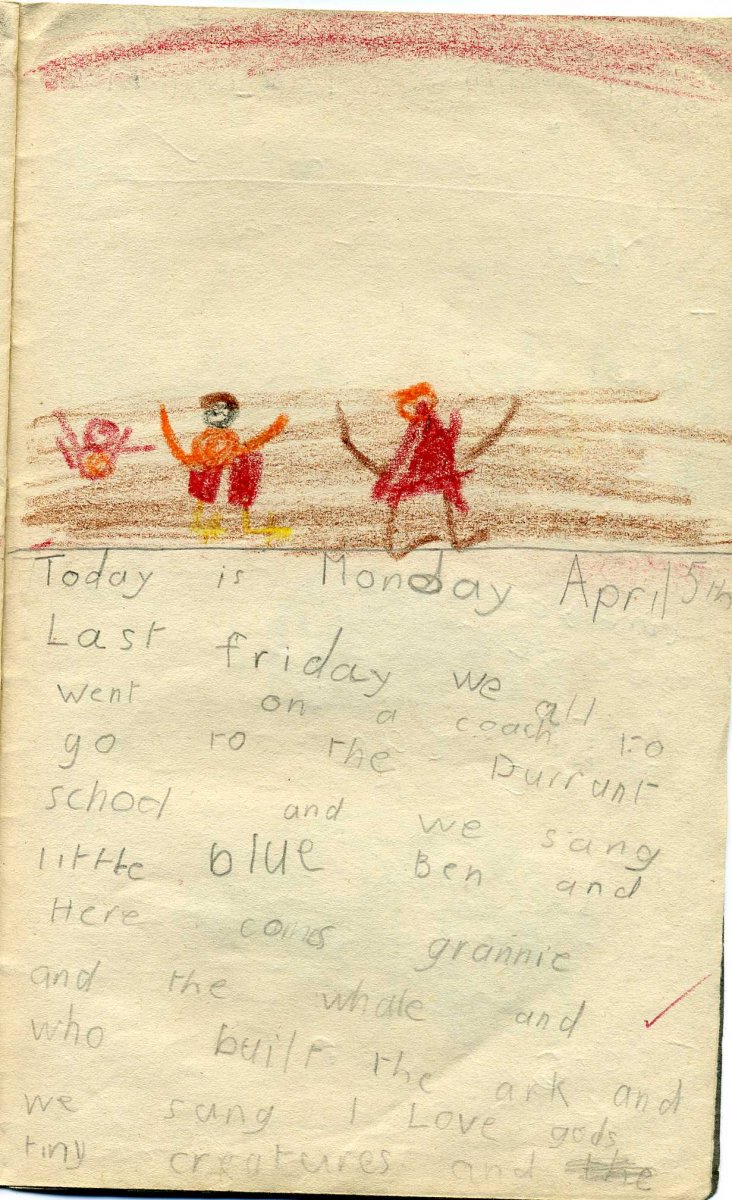 Today is Monday April 5th
Last friday we all
went on a coach to
go to the Durrant
school and we sang
little blue Ben and
Here comes grannie
and the whale and
who built the ark and
we sang I Love gods
tiny creatures and the